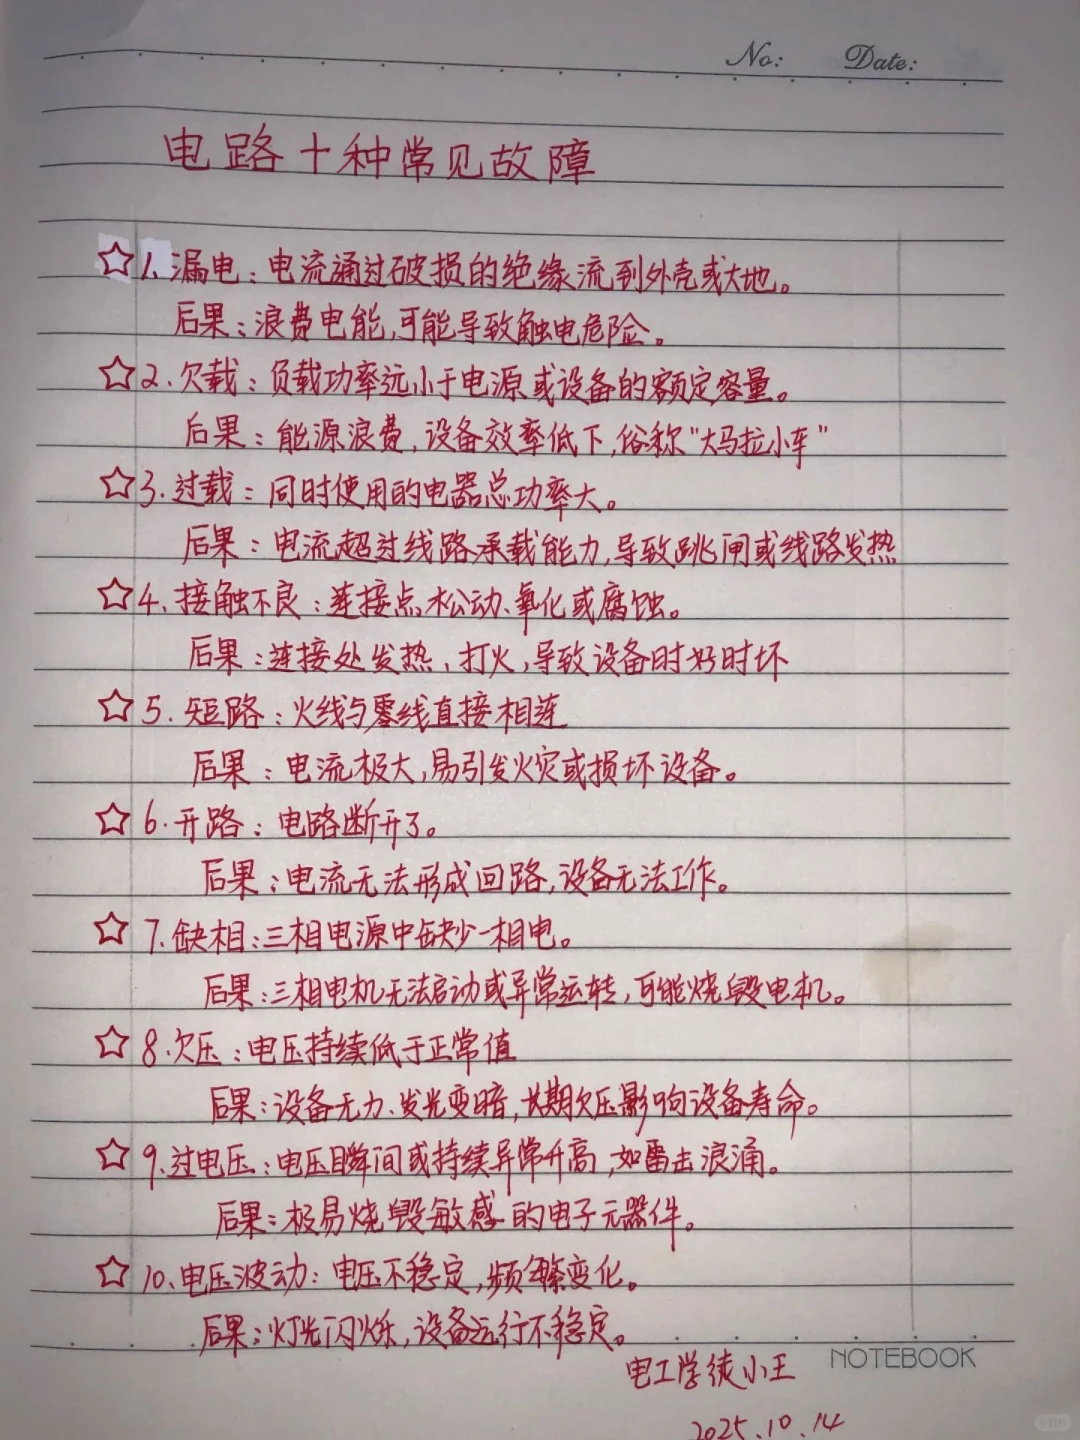 No:    Date:
电路十种常见故障
☆1.漏电：电流通过破损的绝缘流到外壳或大地。
后果：浪费电能,可能导致触电危险。
☆2.欠载：负载功率远小于电源或设备的额定容量。
后果：能源浪费,设备效率低下,俗称“大马拉小车”
☆3.过载：同时使用的电器总功率大。
后果：电流超过线路承载能力,导致跳闸或线路发热
☆4.接触不良：连接点松动、氧化或腐蚀。
后果：连接处发热,打火,导致设备时好时坏
☆5.短路：火线与零线直接相连
后果：电流极大,易引发火灾或损坏设备。
☆6.开路：电路断开了。
后果：电流无法形成回路,设备无法工作。
☆7.缺相：三相电源中缺少一相电。
后果：三相电机无法启动或异常运转,可能烧毁电机。
☆8.欠压：电压持续低于正常值
后果：设备无力、发光变暗,长期欠压影响设备寿命。
☆9.过电压：电压瞬间或持续异常升高,如雷击浪涌。
后果：极易烧毁敏感的电子元器件。
☆10、电压波动：电压不稳定,频繁变化。
后果：灯光闪烁,设备运行不稳定。
NOTEBOOK
电工学徒小王
2025.10.14